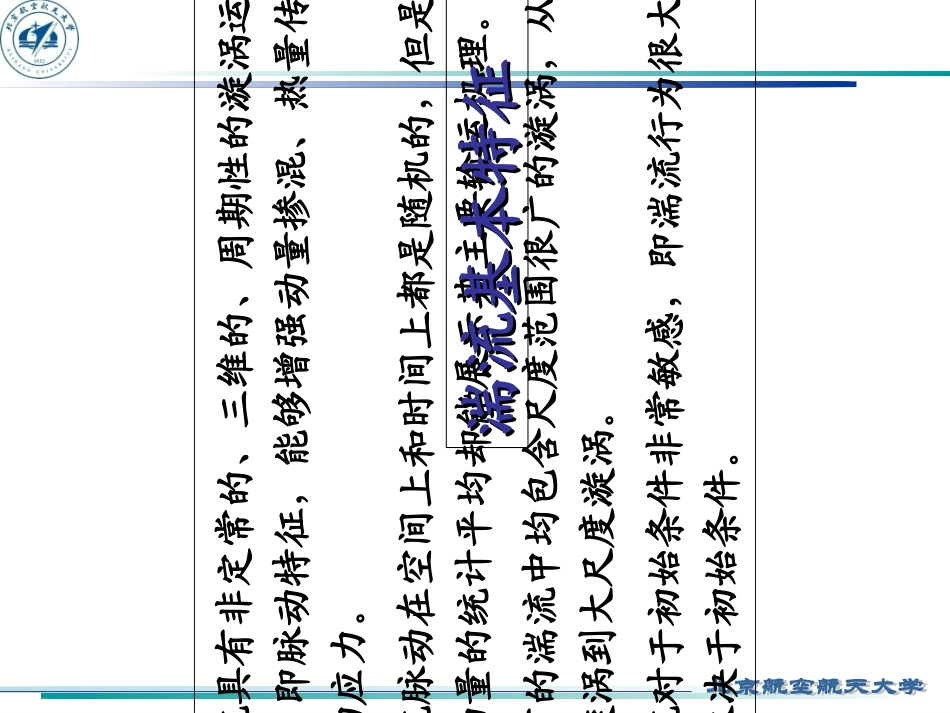 湍流基本特征
具有非定常的、三维的、周期性的漩涡运
即脉动特征，能够增强动量掺混、热量传
应力。
脉动在空间上和时间上都是随机的，但是
量的统计平均却能展示其主要输运机理。
的湍流中均包含尺度范围很广的漩涡，从
涡到大尺度漩涡。
对于初始条件非常敏感，即湍流行为很大
决于初始条件。
北京航空航天大学
北京航空航天大学